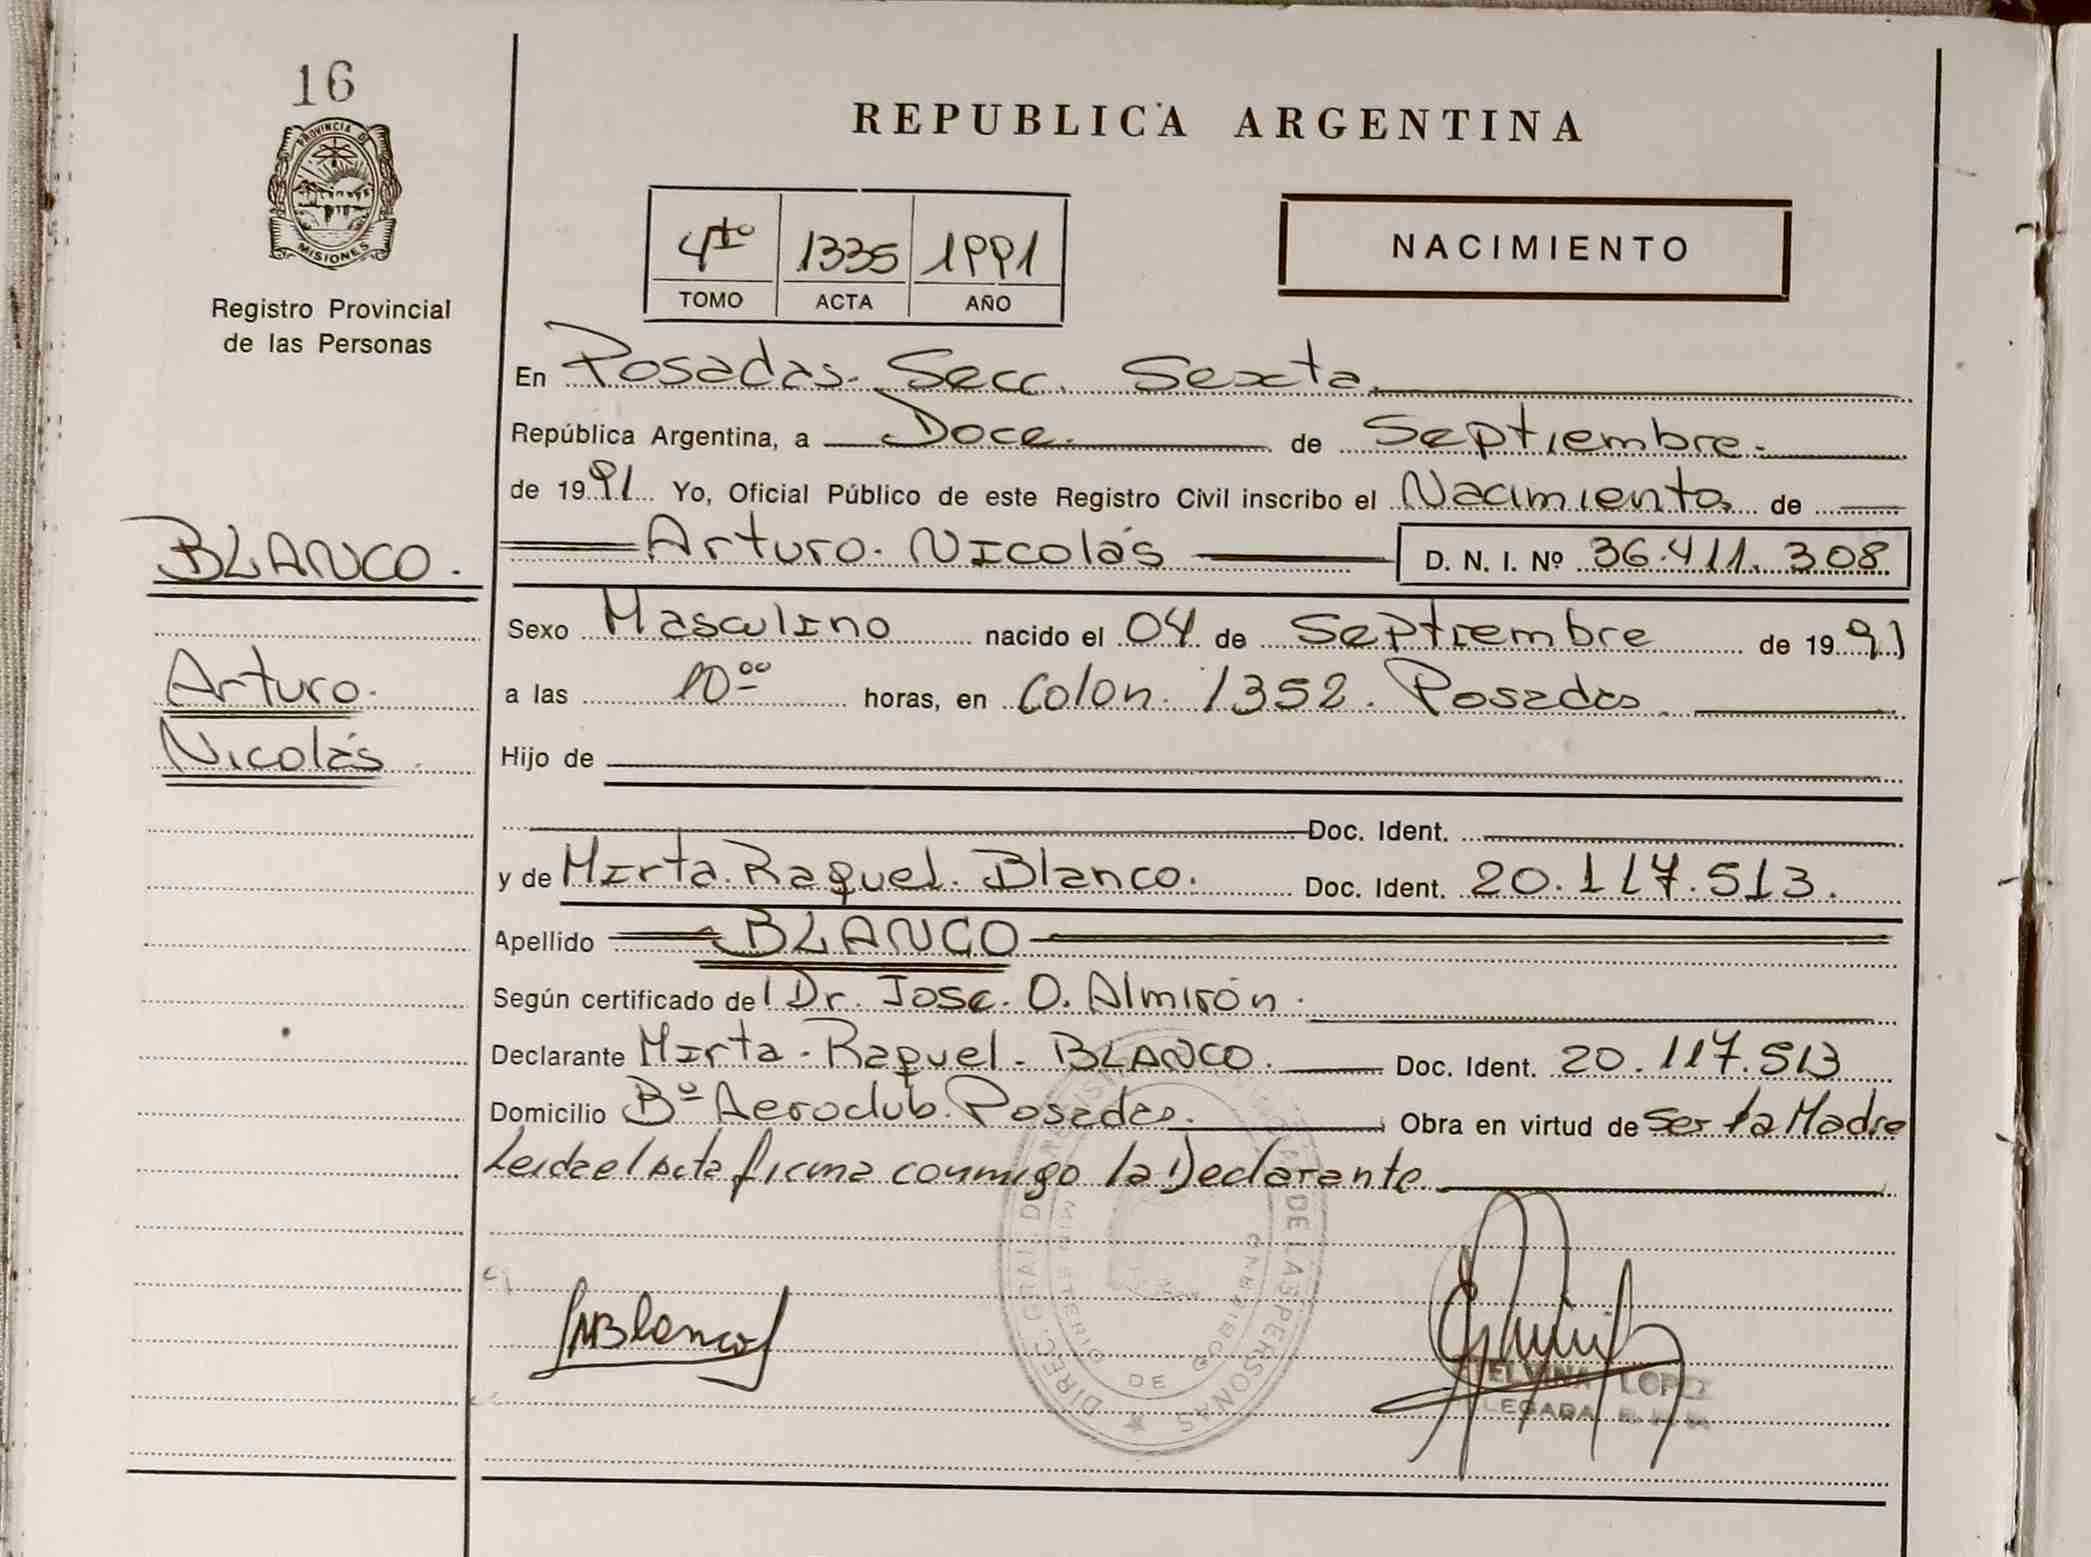 16
PROVINCIA DE
MISIONES
Registro Provincial
de las Personas
REPUBLICA ARGENTINA
4to 1335 1991
TOMO ACTA AÑO
NACIMIENTO
En Posadas. Secc. Sexta.
República Argentina, a Doce. de Septiembre.
de 1991 Yo, Oficial Público de este Registro Civil inscribo el Nacimiento, de
BLANCO.
Arturo. Nicolás D. N. I. Nº 36.411.308
Sexo Masculino nacido el 04 de Septiembre de 1991
Arturo.
a las 10⁰⁰ horas, en Colon. 1352. Posadas.
Nicolás.
Hijo de
Doc. Ident.
y de Mirta. Raquel. Blanco. Doc. Ident. 20.117.513.
Apellido BLANCO
Según certificado del Dr. Jose. O. Almirón.
Declarante Mirta. Raquel. BLANCO. Doc. Ident. 20.117.513
Domicilio Bº Aeroclub. Posadas. Obra en virtud de ser la Madre
Leida el acta firma conmigo la Declarante
MBlanco
DIREC. GRAL. DE LAS PERSONAS
DE
ELVINA LOPEZ